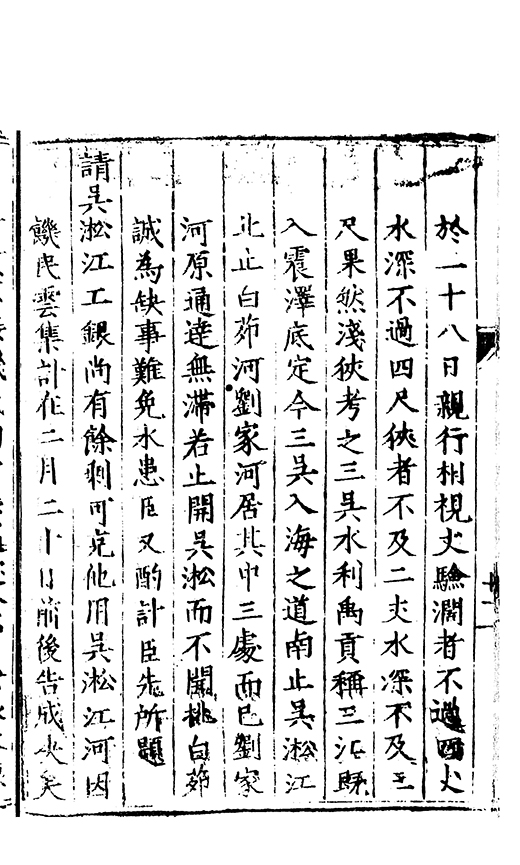 於二十八日親行相視丈驗濶者不過四丈
水深不過四尺狹者不及二丈水深不及三
尺果然淺狹考之三吳水利禹貢稱三江旣
入震澤底定今三吳入海之道南止吳淞江
北止白茆河劉家河居其中三處而已劉家
河原通達無滯若止開吳淞而不開挑白茆
誠為缺事難免水患臣又酌計臣先所題
請吳淞江工銀尚有餘剩可克他用吳淞江河因
饑民雲集計在二月二十日前後告成决矣